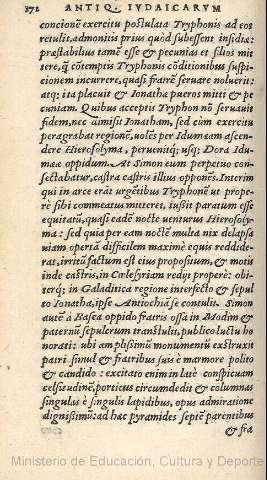 372 ANTIQ. IVDAICARVM
cioneͫ exercitu poſtulata Tryphonis ad eos
retulit, admonitis prius quòd ſubeſſent inſidiæ:
præſtabilius tamē eſſe & pecunias et filios mit
tere, q̃ cōtemptis Tryphonis cōditionibus ſuſpi-
cionem incurrere, quaſi fratrē ſeruare noluerit:
atq; ita placuit & Ionathæ pueros mitti & pe
cuniam. Quibus acceptis Tryphon nō ſeruauit
fidem, nec dimiſit Ionatham, ſed cùm exercitu
peragrabat regionē, uolēs per Idumæam aſcen-
dere Hieroſolyma, peruenitq; uſq; Dora Idu-
mææ oppidum. At Simon eum perpetuo con-
ſectabatur, caſtra caſtris illius opponēs. Interim
qui in arce erāt urgētibus Tryphonē ut prope-
rè ſibi commeatus mitteret, iußit paratum eſſe
equitatū, quaſi eadē nocte uenturus Hieroſoly-
ma: ſed quia per eam noctē multa nix delapſa
uiam opertā difficilem maximè equis reddide-
rat, irritū factum eſt eius propoſitum, & motis
inde caſtris, in Cœleſyriam redijt properè: obi-
terq́; in Galaditica regione interfecto & ſepul
to Ionatha, ipſe Antiochiā ſe contulit. Simon
autē à Baſea oppido fratris oſſa in Modim &
paternū ſepulcrum tranſtulit, publico luctu ho
norati: ubi ampliſſimū monumentū exſtruxit
patri ſimul & fratribus ſuis è marmore polito
& candido: excitato enim in latē conſpicuam
celſitudinē, porticus circumdedit & columnas
ſingulas è ſingulis lapidibus, opus admiratione
digniſſimū: ad hæc pyramides ſeptē parentibus
& fra
Ministerio de Educación, Cultura y Deporte